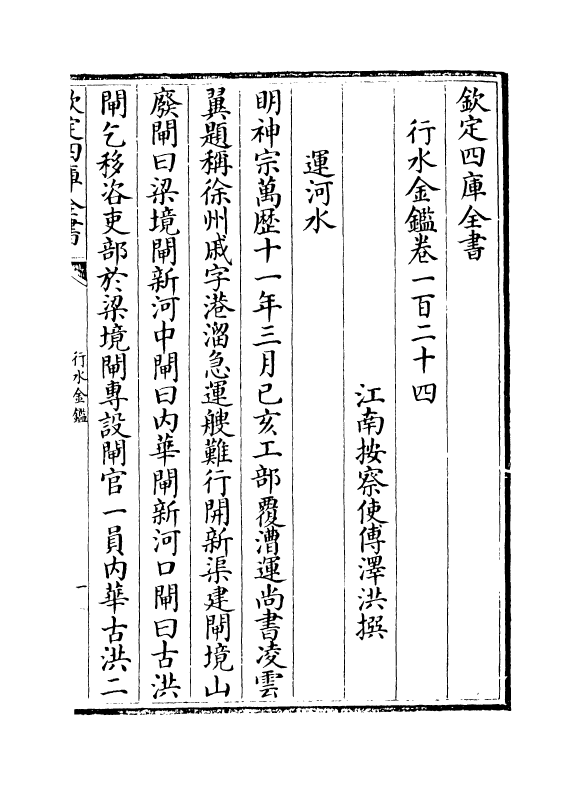 欽定四庫全書
行水金鑑卷一百二十四
江南按察使傅澤洪撰
運河水
明神宗萬歷十一年三月己亥工部覆漕運尚書凌雲
翼題稱徐州戚字港溜急運艘難行開新渠建閘境山
廢閘曰梁境閘新河中閘曰内華閘新河口閘曰古洪
閘乞移咨吏部於梁境閘專設閘官一員内華古洪二
欽定四庫全書
行水金鑑
一